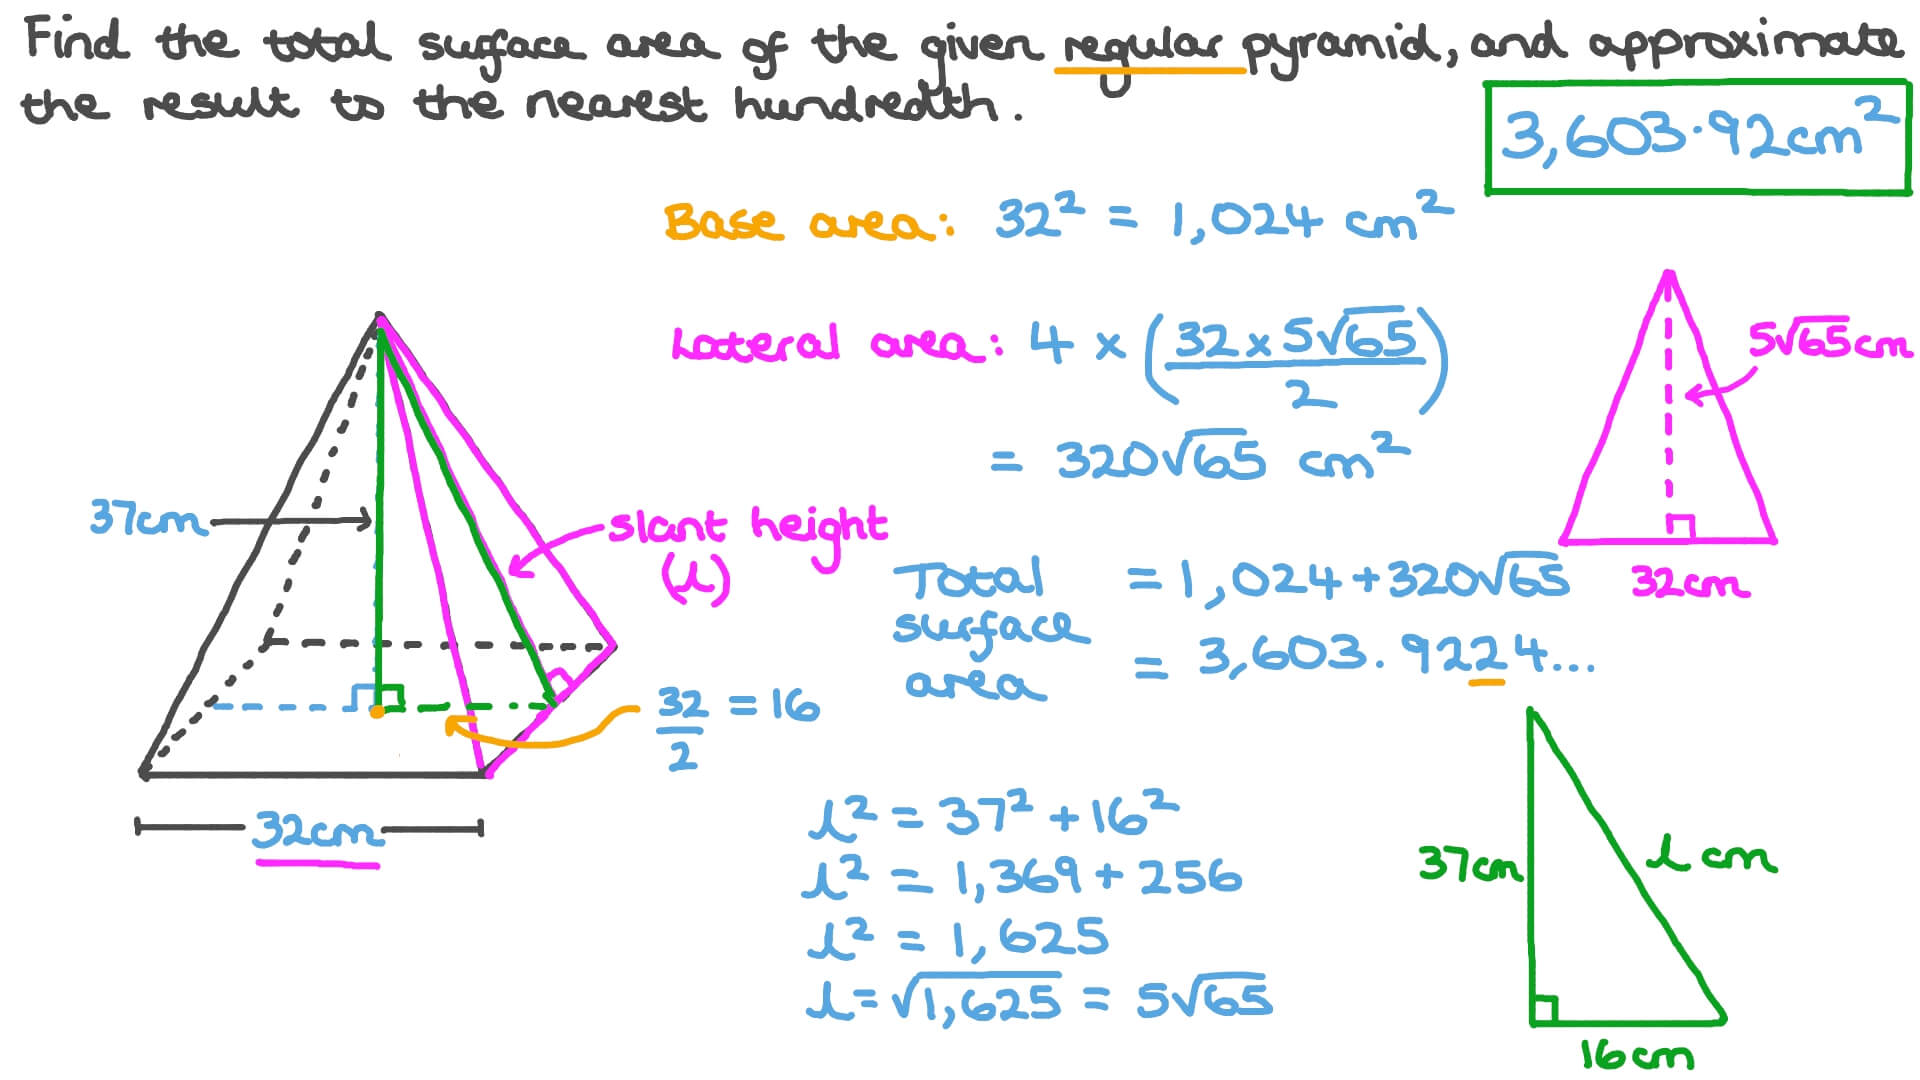 Find the total surface area of the given regular pyramid, and approximate
the result to the nearest hundredth.
3,603.92cm²
Base area: 32² = 1,024 cm²
Lateral area: 4 × (32 × 5√65 / 2)
= 320√65 cm²
5√65cm
32cm
37cm
slant height
(l)
32/2 = 16
32cm
Total surface area = 1,024 + 320√65
= 3,603.9224...
l² = 37² + 16²
l² = 1,369 + 256
l² = 1,625
l = √1,625 = 5√65
37cm
l cm
16cm